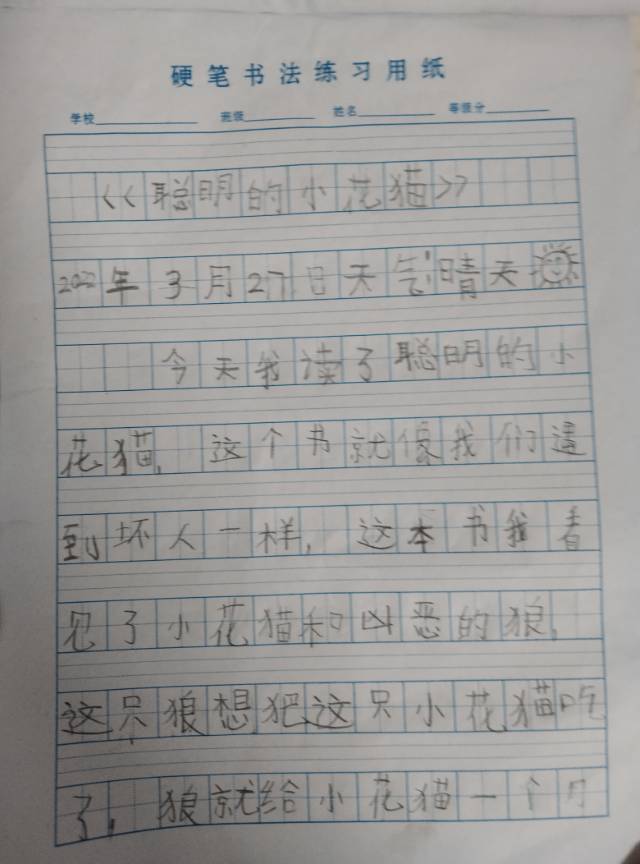 硬笔书法练习用纸
学校 班级 姓名 等级分
<<聪明的小花猫>>
2022年3月27日天气:晴天
今天我读了聪明的小
花猫,这个书就像我们遣
到坏人一样,这本书我看
见了小花猫和凶恶的狼,
这只狼想把这只小花猫吃
了,狼就给小花猫一个月